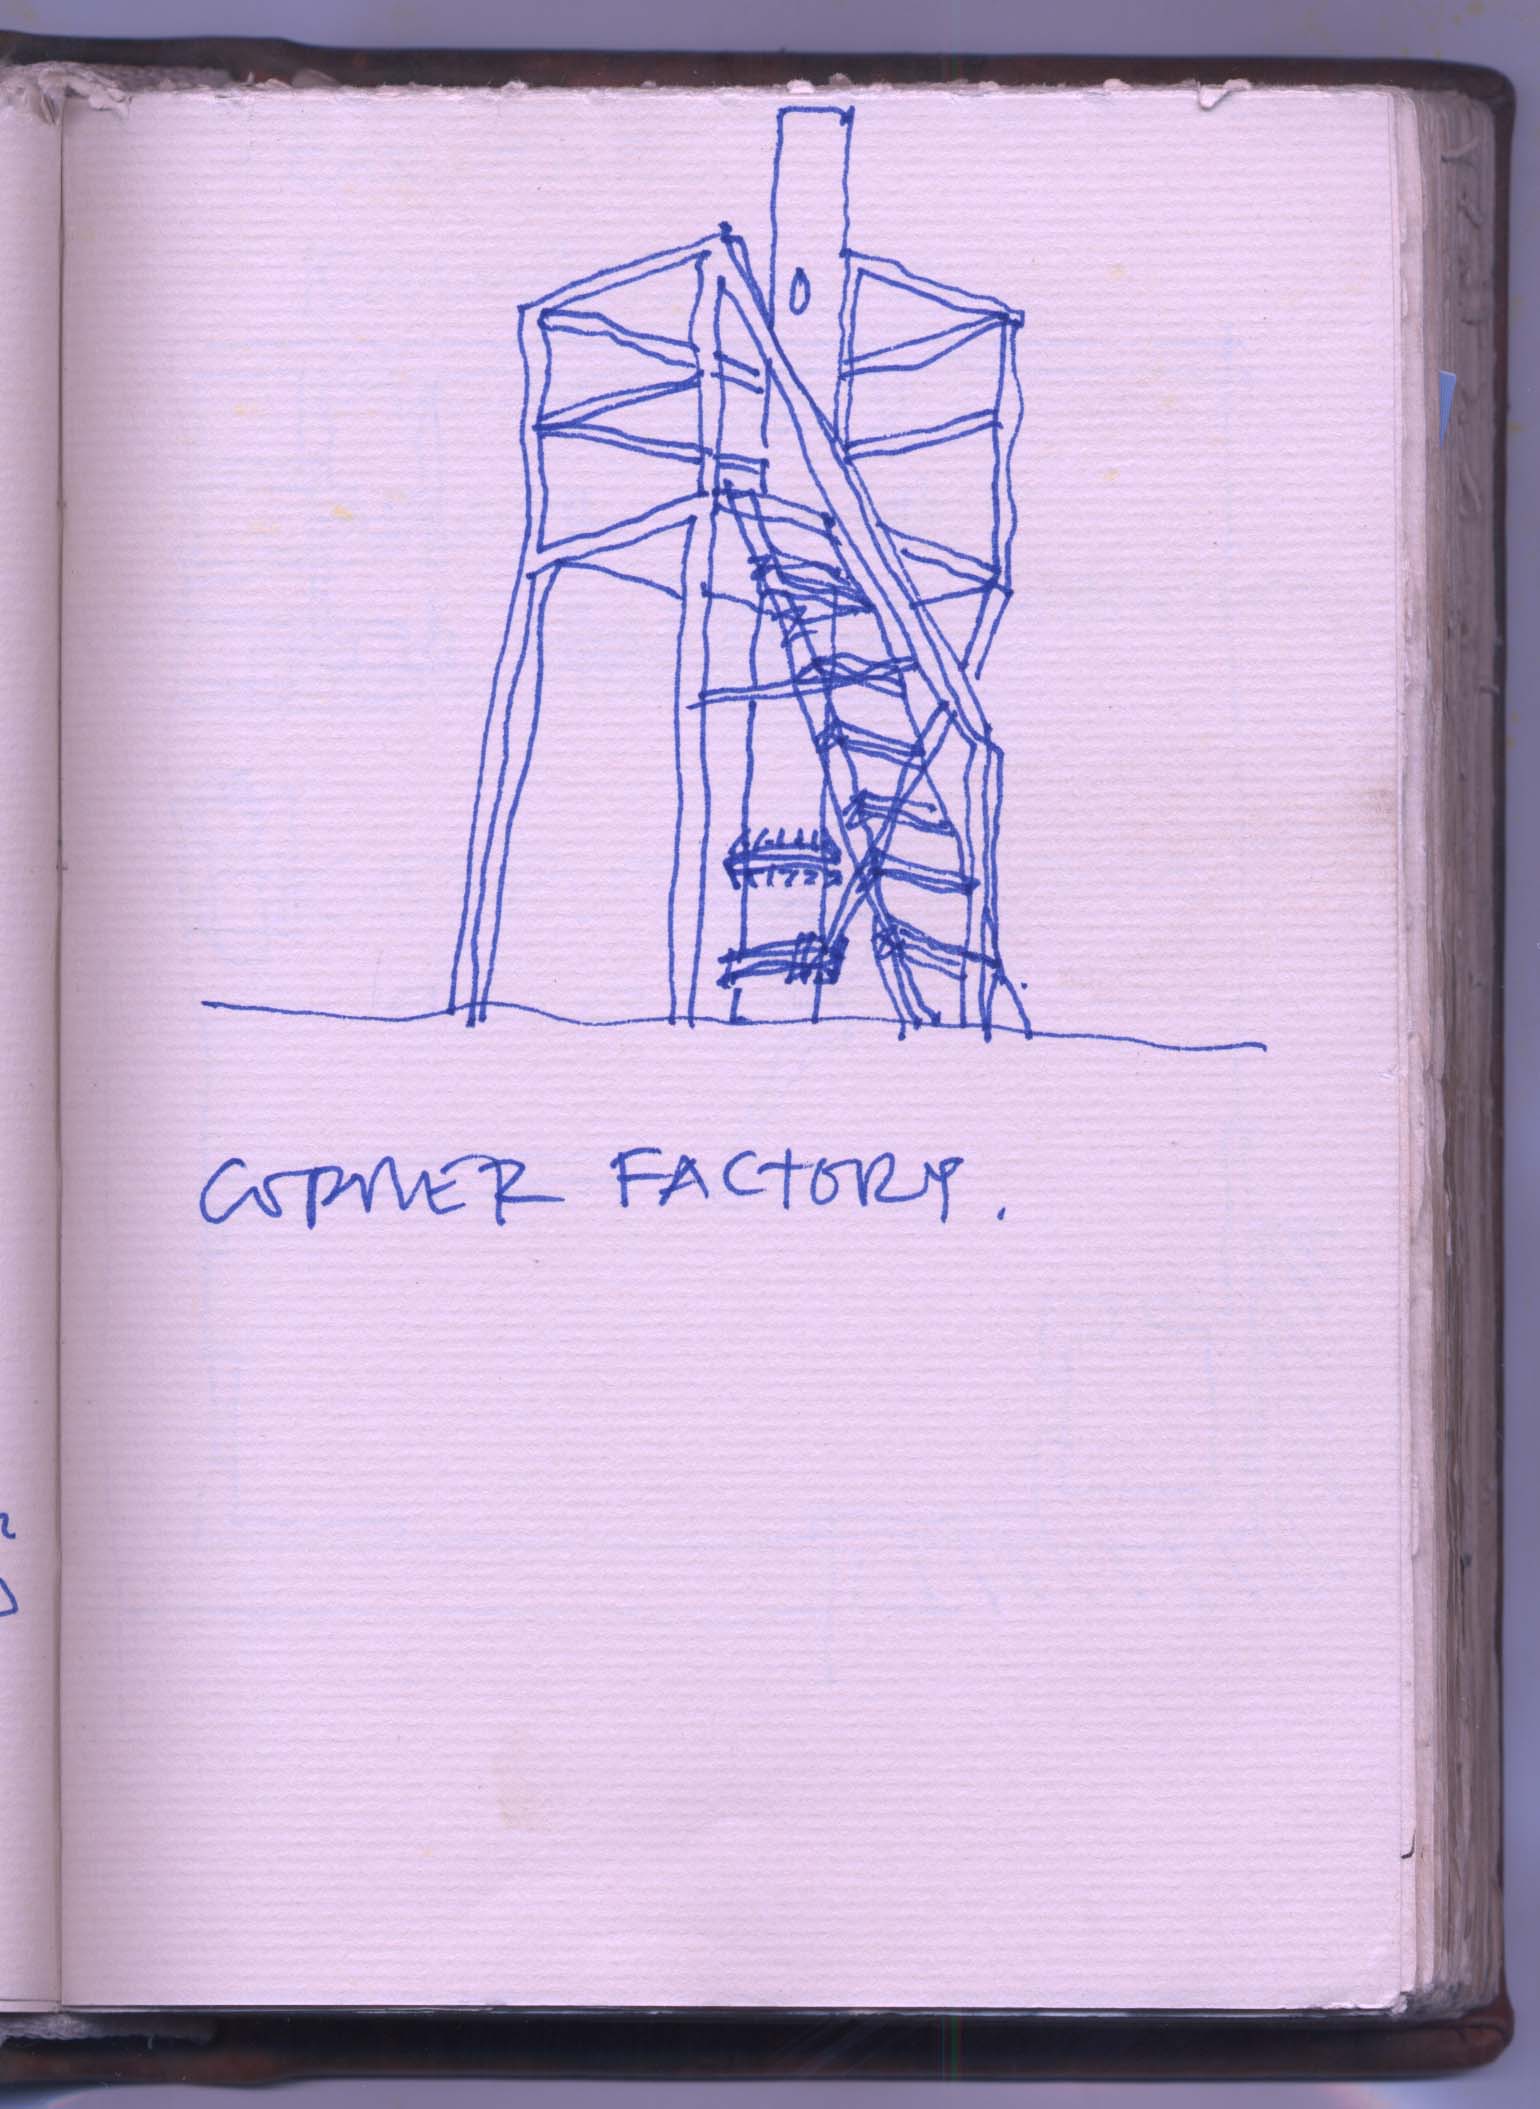 CORNER FACTORY.